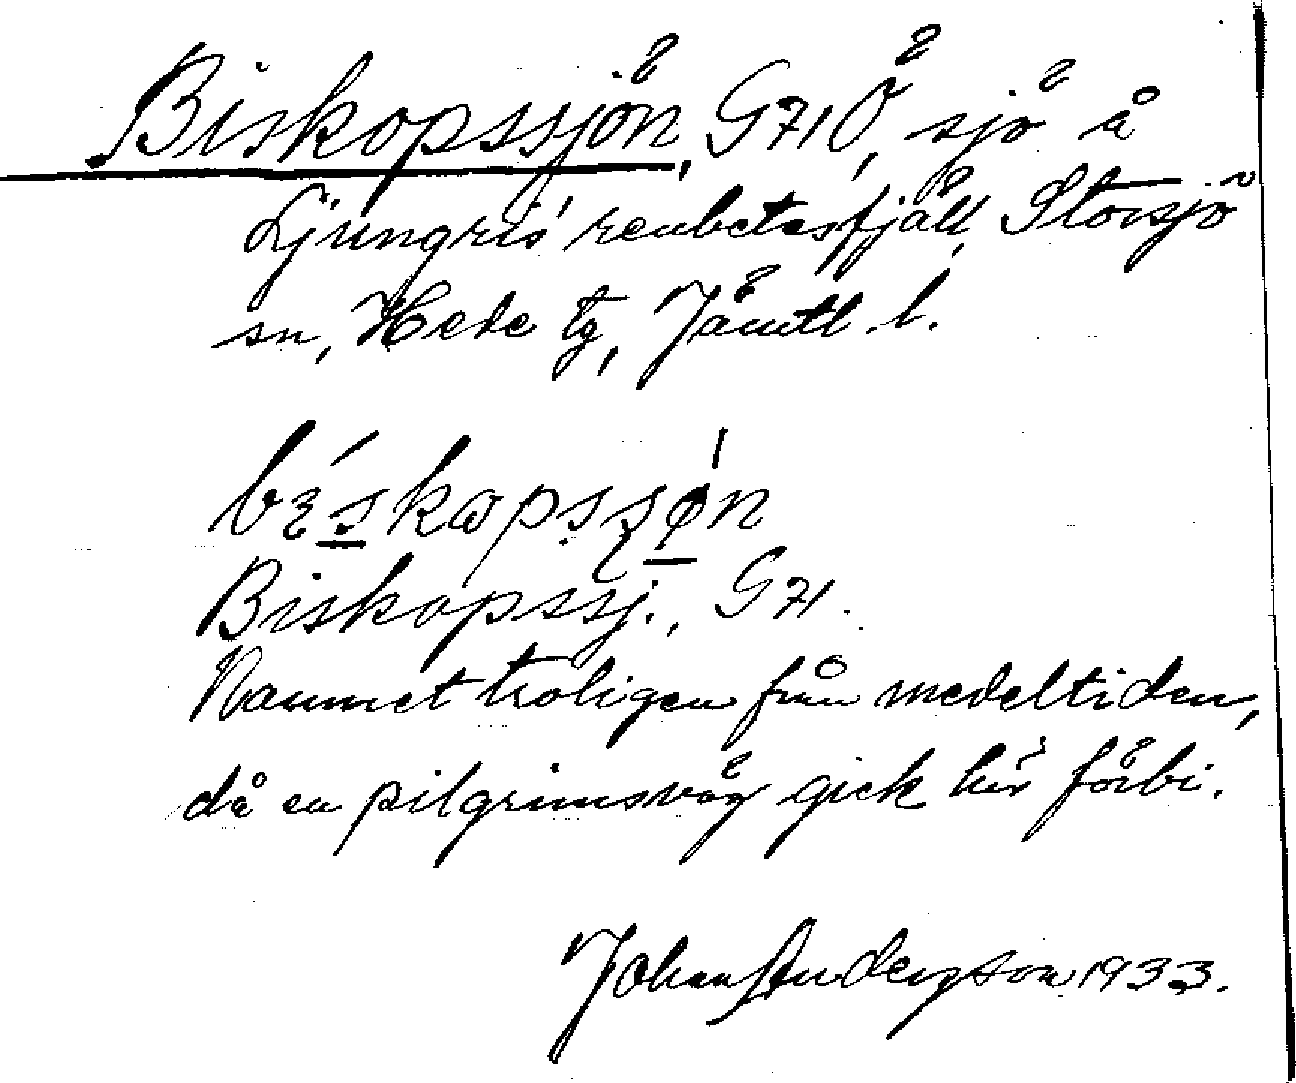 Biskopssjön, G71Ö, sjö å
Ljungris' renbetesfjäll, Storsjö
sn, Hede tg, Jämtl. l.
bɪ́skɷpsʂø̀n
Biskopssj., G71.
Namnet troligen från medeltiden,
då en pilgrimsväg gick här förbi.
Johan Anderson 1933.